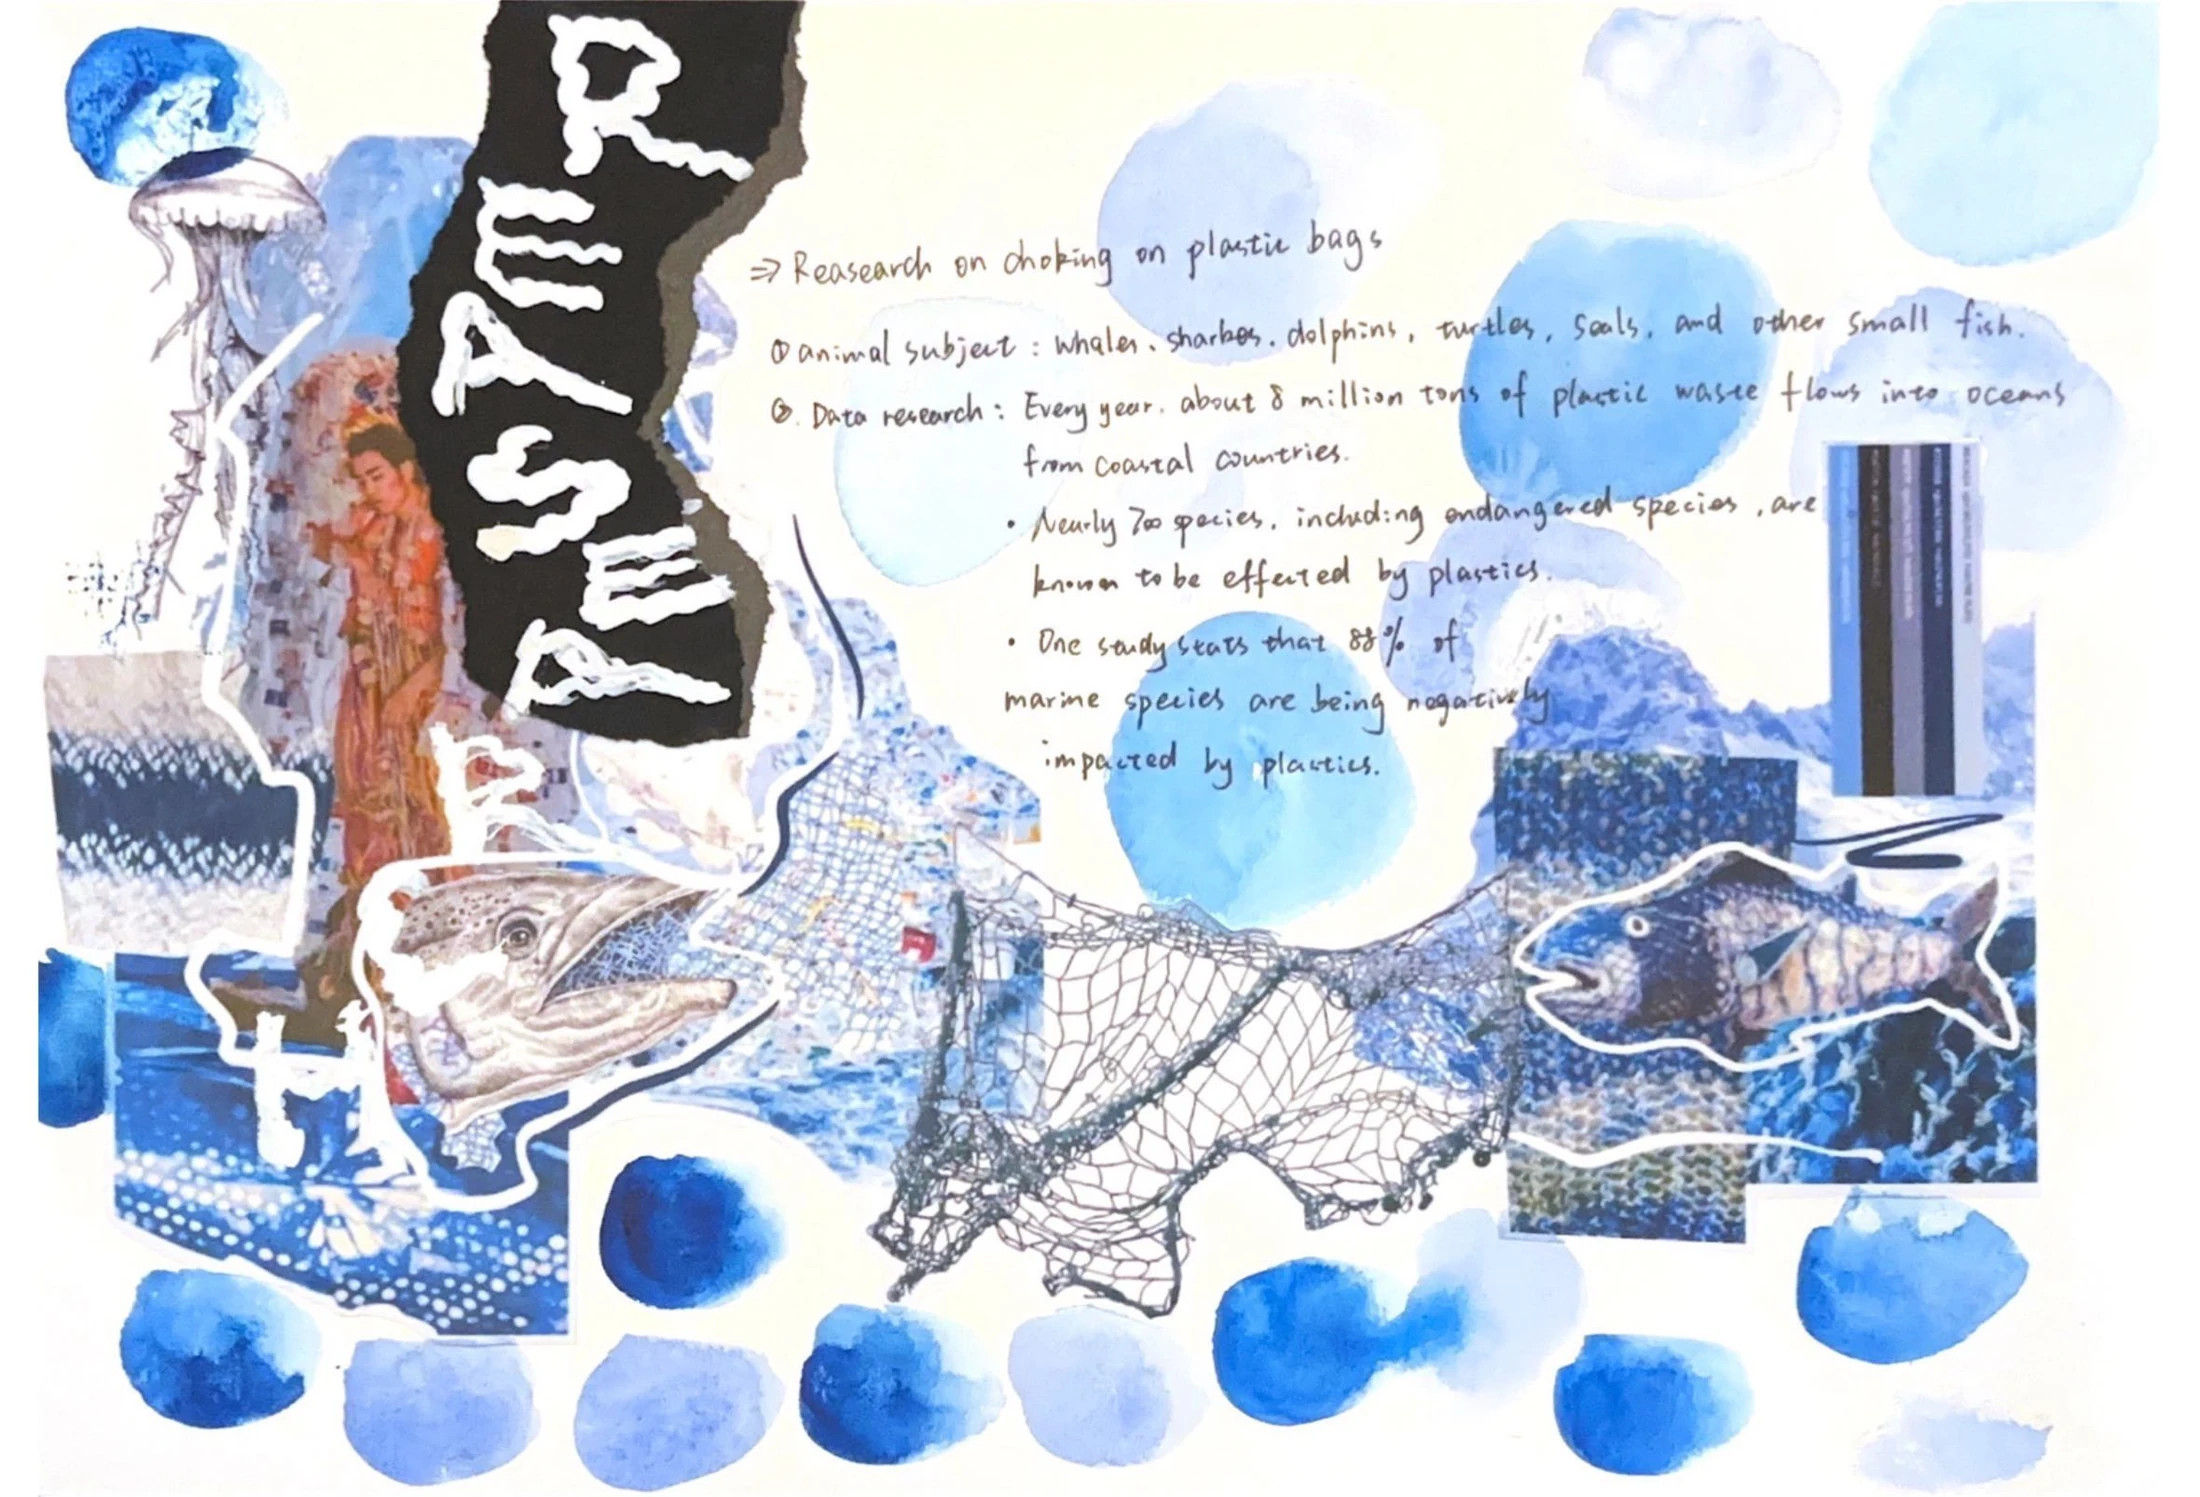 REASEARCH
⇒ Reasearch on choking on plastic bags
① animal subject : whales、sharkes、dolphins, turtles, seals, and other small fish.
②. Data research : Every year, about 8 million tons of plastic waste flows into oceans
from coastal countries.
• Nearly 700 species, including endangered species, are
known to be effected by plastics.
• One study stats that 88% of
marine species are being negatively
impacted by plastics.